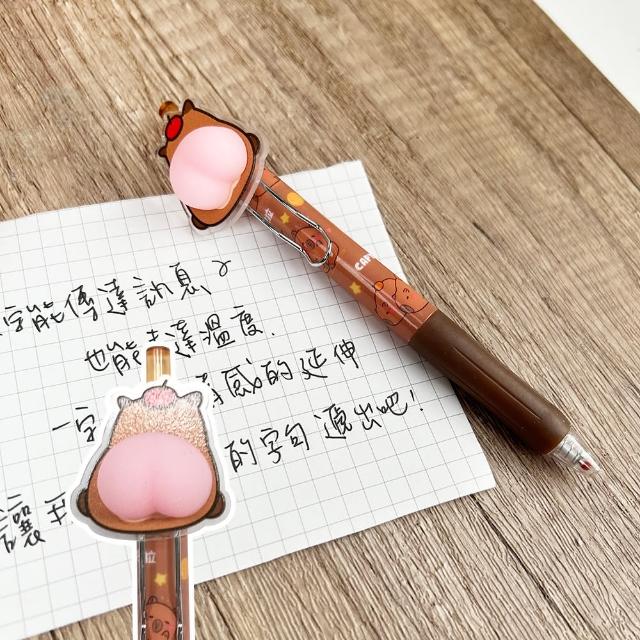 字能傳達訊息,
也能表達溫度.
一字 情感的延伸
讓我 的字句遞出吧!
位
CAP
位